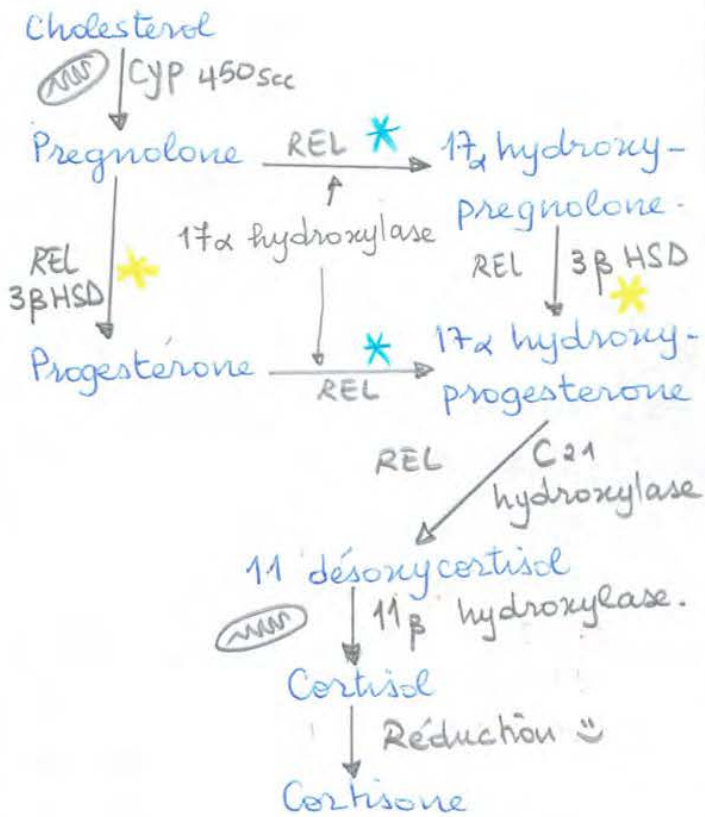 Cholesterol
CYP 450scc
Pregnolone
REL
17α hydroxy-
pregnolone.
17α hydroxylase
REL
3βHSD
REL
3β HSD
Progestérone
REL
17α hydroxy-
progesterone
REL
C21
hydroxylase
11 désoxycortisol
11β hydroxylase.
Cortisol
Réduction
Cortisone